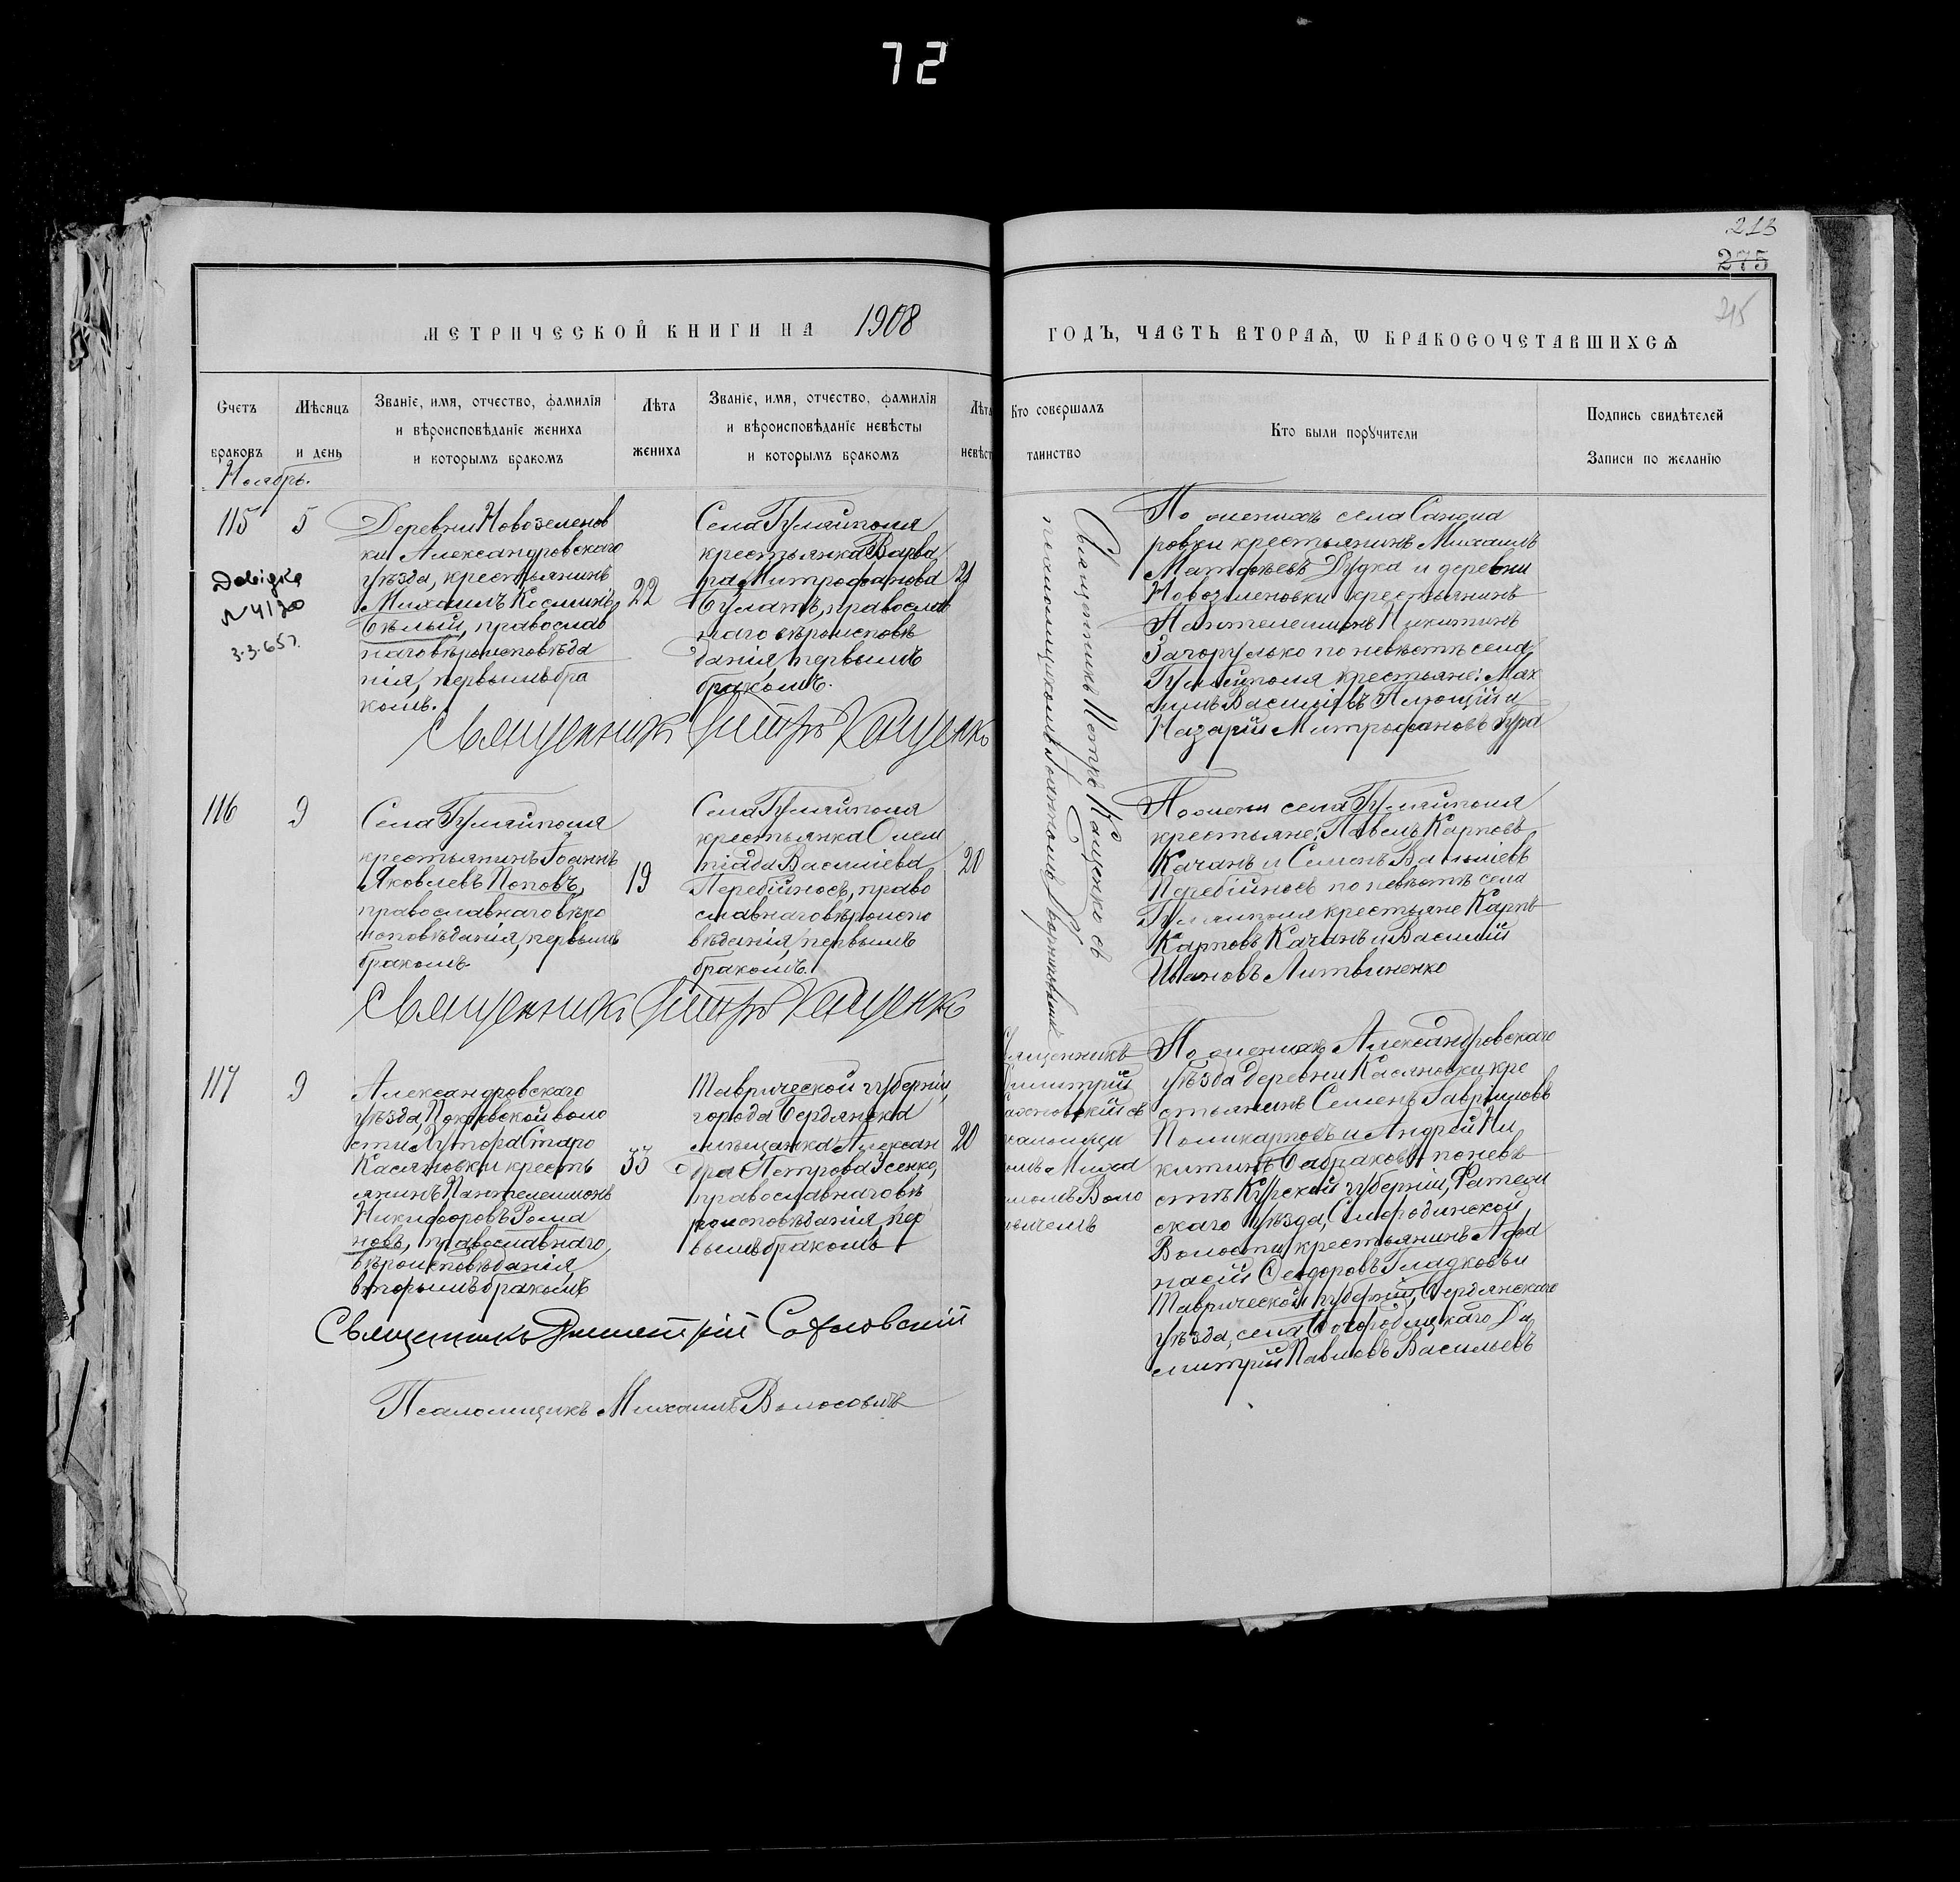 72
213
275
215
МЕТРИЧЕСКОЙ КНИГИ НА 1908
ГОДЪ, ЧАСТЬ ВТОРАѦ, Ѡ БРАКОСОЧЕТАВШИХСѦ
Счетъ браковъ
Мѣсяцъ и день
Званіе, имя, отчество, фамилія
и вѣроисповѣданіе жениха
и которымъ бракомъ
Лѣта жениха
Званіе, имя, отчество, фамилія
и вѣроисповѣданіе невѣсты
и которымъ бракомъ
Лѣта невѣст
Кто совершалъ таинство
Кто были поручители
Подпись свидѣтелей
Записи по желанію
Ноябрь.
115
5
Довідка
N 4120
3.3.65 г.
Деревни Новозеленов
ки Александровскаго
уѣзда, крестьянинъ
Михаилъ Косминъ
Бѣлый, православ
наго вѣроисповѣда
нія, первымъ бра
комъ.
22
Села Гуляйполя
крестьянка Варва
ра Митрофанова
Булатъ, православ
наго вѣроисповѣ
данія, первымъ
бракомъ.
21
Священникъ Петръ Кащенко
Священникъ Петръ Кащенко съ
псаломщикомъ
По женихѣ села
ровки крестьянинъ Михаилъ
Матфеевъ Дудка и деревни
Новозеленовки крестьянинъ
Пантелеимонъ Никитинъ
Загорулько по невѣстѣ села
Гуляйполя крестьяне: Мак
симъ Васильевъ и
Назарій Митрофановъ
116
9
Села Гуляйполя
крестьянинъ Іоаннъ
Яковлевъ Поповъ,
православнаго вѣро
исповѣданія, первымъ
бракомъ
19
Села Гуляйполя
крестьянка Олим
піада Василіева
Перебійносъ, право
славнаго вѣроиспо
вѣданія, первымъ
бракомъ.
20
Священникъ Петръ Кащенко
По жених села Гуляйполя
крестьяне: Павелъ Карповъ
Качанъ и Семенъ Василіевъ
Перебійносъ по невѣстѣ села
Гуляйполя крестьяне Карпъ
Карповъ Качанъ и Василій
Ивановъ Литвиненко
117
9
Александровскаго
уѣзда, Покровской воло
сти Хутора Старо
Касяновки кресть
янинъ Пантелеимонъ
Никифоровъ Рома
новъ, православнаго
вѣроисповѣданія,
вторымъ бракомъ
33
Таврической губерніи,
города Бердянска
мѣщанка Алексан
дра Петрова Усенко,
православнаго вѣ
роисповѣданія, пер
вымъ бракомъ
20
Священникъ
Димитрій
съ
омъ Миха
иломъ Воло
вичемъ
По женихѣ Александровскаго
уѣзда деревни Касяновки кре
стьянинъ Семенъ Гавриловъ
Поликарповъ и Андрей Ни
китинъ по невѣ
стѣ Курской губерніи, Фатеж
скаго уѣзда, Смородинской
Волости крестьянинъ Афа
насій Феодоровъ Гладковъ и
Таврической губерніи, Бердянскаго
уѣзда, села Богородицкаго Ди
митрій Павловъ Васильевъ
Священникъ Димитрій Сахновскій
Псаломщикъ Михаилъ Волосовичъ